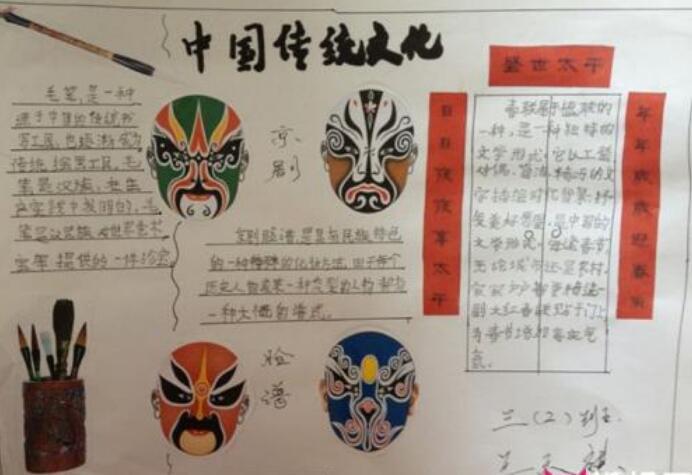 中国传统文化
毛笔,是一种
源于中国的传统书
写工具,也逐渐成为
传统绘画工具,毛
笔是汉族
产实践中发明的,毛
笔是汉民族对世界艺术
宝库提供的一件珍宝。
京剧
京剧脸谱,是具有民族特色
的一种特殊的化妆方法,由于每个
历史人物或某一种类型的人物都有
一种大概的谱式。
脸谱
盛世太平
日日夜夜享太平
年年岁岁迎春
春联属于楹联的
一种,是一种独特的
文学形式,它以工整
对偶、简洁、精巧的文
字描绘时代背景,抒
发美好愿望,是中国的
文学形式。每逢春节
无论城市还是农村,
家家户户都要精选一
副大红春联贴于门上
为春节增加喜庆气
氛。
三(2)班
王